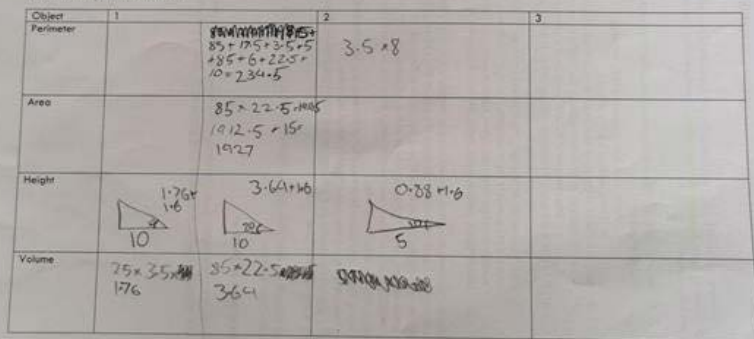 Object 1 2 3
Perimeter
85+17.5+3.5+5
+85+6+22.5+
10=234.5
3.5×8
Area
85×22.5
1912.5+15=
1927
Height
1.76+
1.6
10
3.64+1.6
10
0.88+1.6
5
Volume
1.76
85×22.5
3.64